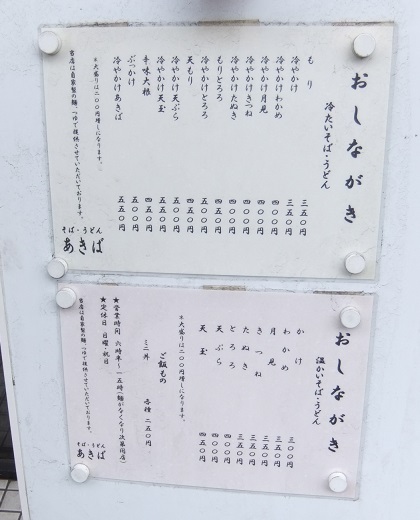 おしながき
冷たいそば・うどん
もり 三五〇円
冷やかけ 三五〇円
冷やかけわかめ 四〇〇円
冷やかけ月見 四〇〇円
冷やかけきつね 四〇〇円
冷やかけたぬき 四〇〇円
もりとろろ 四五〇円
冷やかけとろろ 五〇〇円
天もり 四五〇円
冷やかけ天ぷら 五〇〇円
冷やかけ天玉 五五〇円
辛味大根 四五〇円
ぶっかけ 五五〇円
冷やかけあきば 五五〇円
※大盛りは二〇〇円増しになります。
当店は自家製の麺、「ゆで」提供させていただいております。
そば・うどん
あきば
おしながき
温かいそば・うどん
かけ 三〇〇円
わかめ 三五〇円
月見 三五〇円
きつね 三五〇円
たぬき 三五〇円
とろろ 四〇〇円
天ぷら 四〇〇円
天玉 四五〇円
※大盛りは二〇〇円増しになります。
ご飯もの
ミニ丼 各種 二五〇円
★営業時間 六時半〜一五時(麺がなくなり次第閉店)
★定休日 日曜・祝日
当店は自家製の麺、「ゆで」提供させていただいております。
そば・うどん
あきば